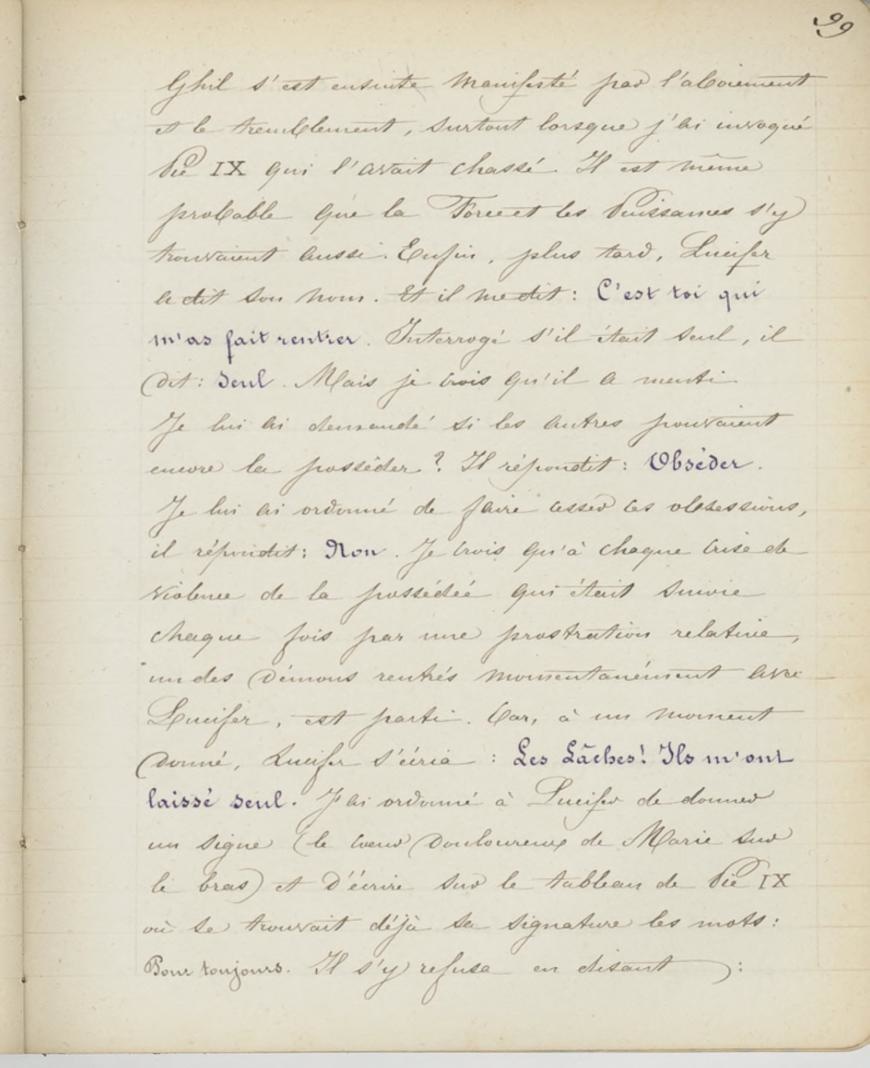 99
Ghil s'est ensuite manifesté par l'aboiement
et le tremblement, surtout lorsque j'ai invoqué
Pie IX qui l'avait chassé. Il est même
probable que la Force et les Puissances s'y
trouvaient aussi. Enfin, plus tard, Lucifer
a dit son nom. Et il me dit : C'est toi qui
m'as fait rentrer. Interrogé s'il était seul, il
dit : Seul. Mais je crois qu'il a menti.
Je lui ai demandé si les autres pouvaient
encore la posséder ? Il répondit : Obséder.
Je lui ai ordonné de faire cesser ces obsessions,
il répondit : Non. Je crois qu'à chaque crise de
violence de la possédée qui était suivie
chaque fois par une prostration relative,
un des Démons rentrés momentanément avec
Lucifer, est parti. Car, à un moment
donné, Lucifer s'écria : Les Lâches ! Ils m'ont
laissé seul. J'ai ordonné à Lucifer de donner
un signe (le cœur Douloureux de Marie sur
le bras) et d'écrire sur le tableau de Pie IX
où se trouvait déjà sa signature les mots :
Pour toujours. Il s'y refusa en disant :